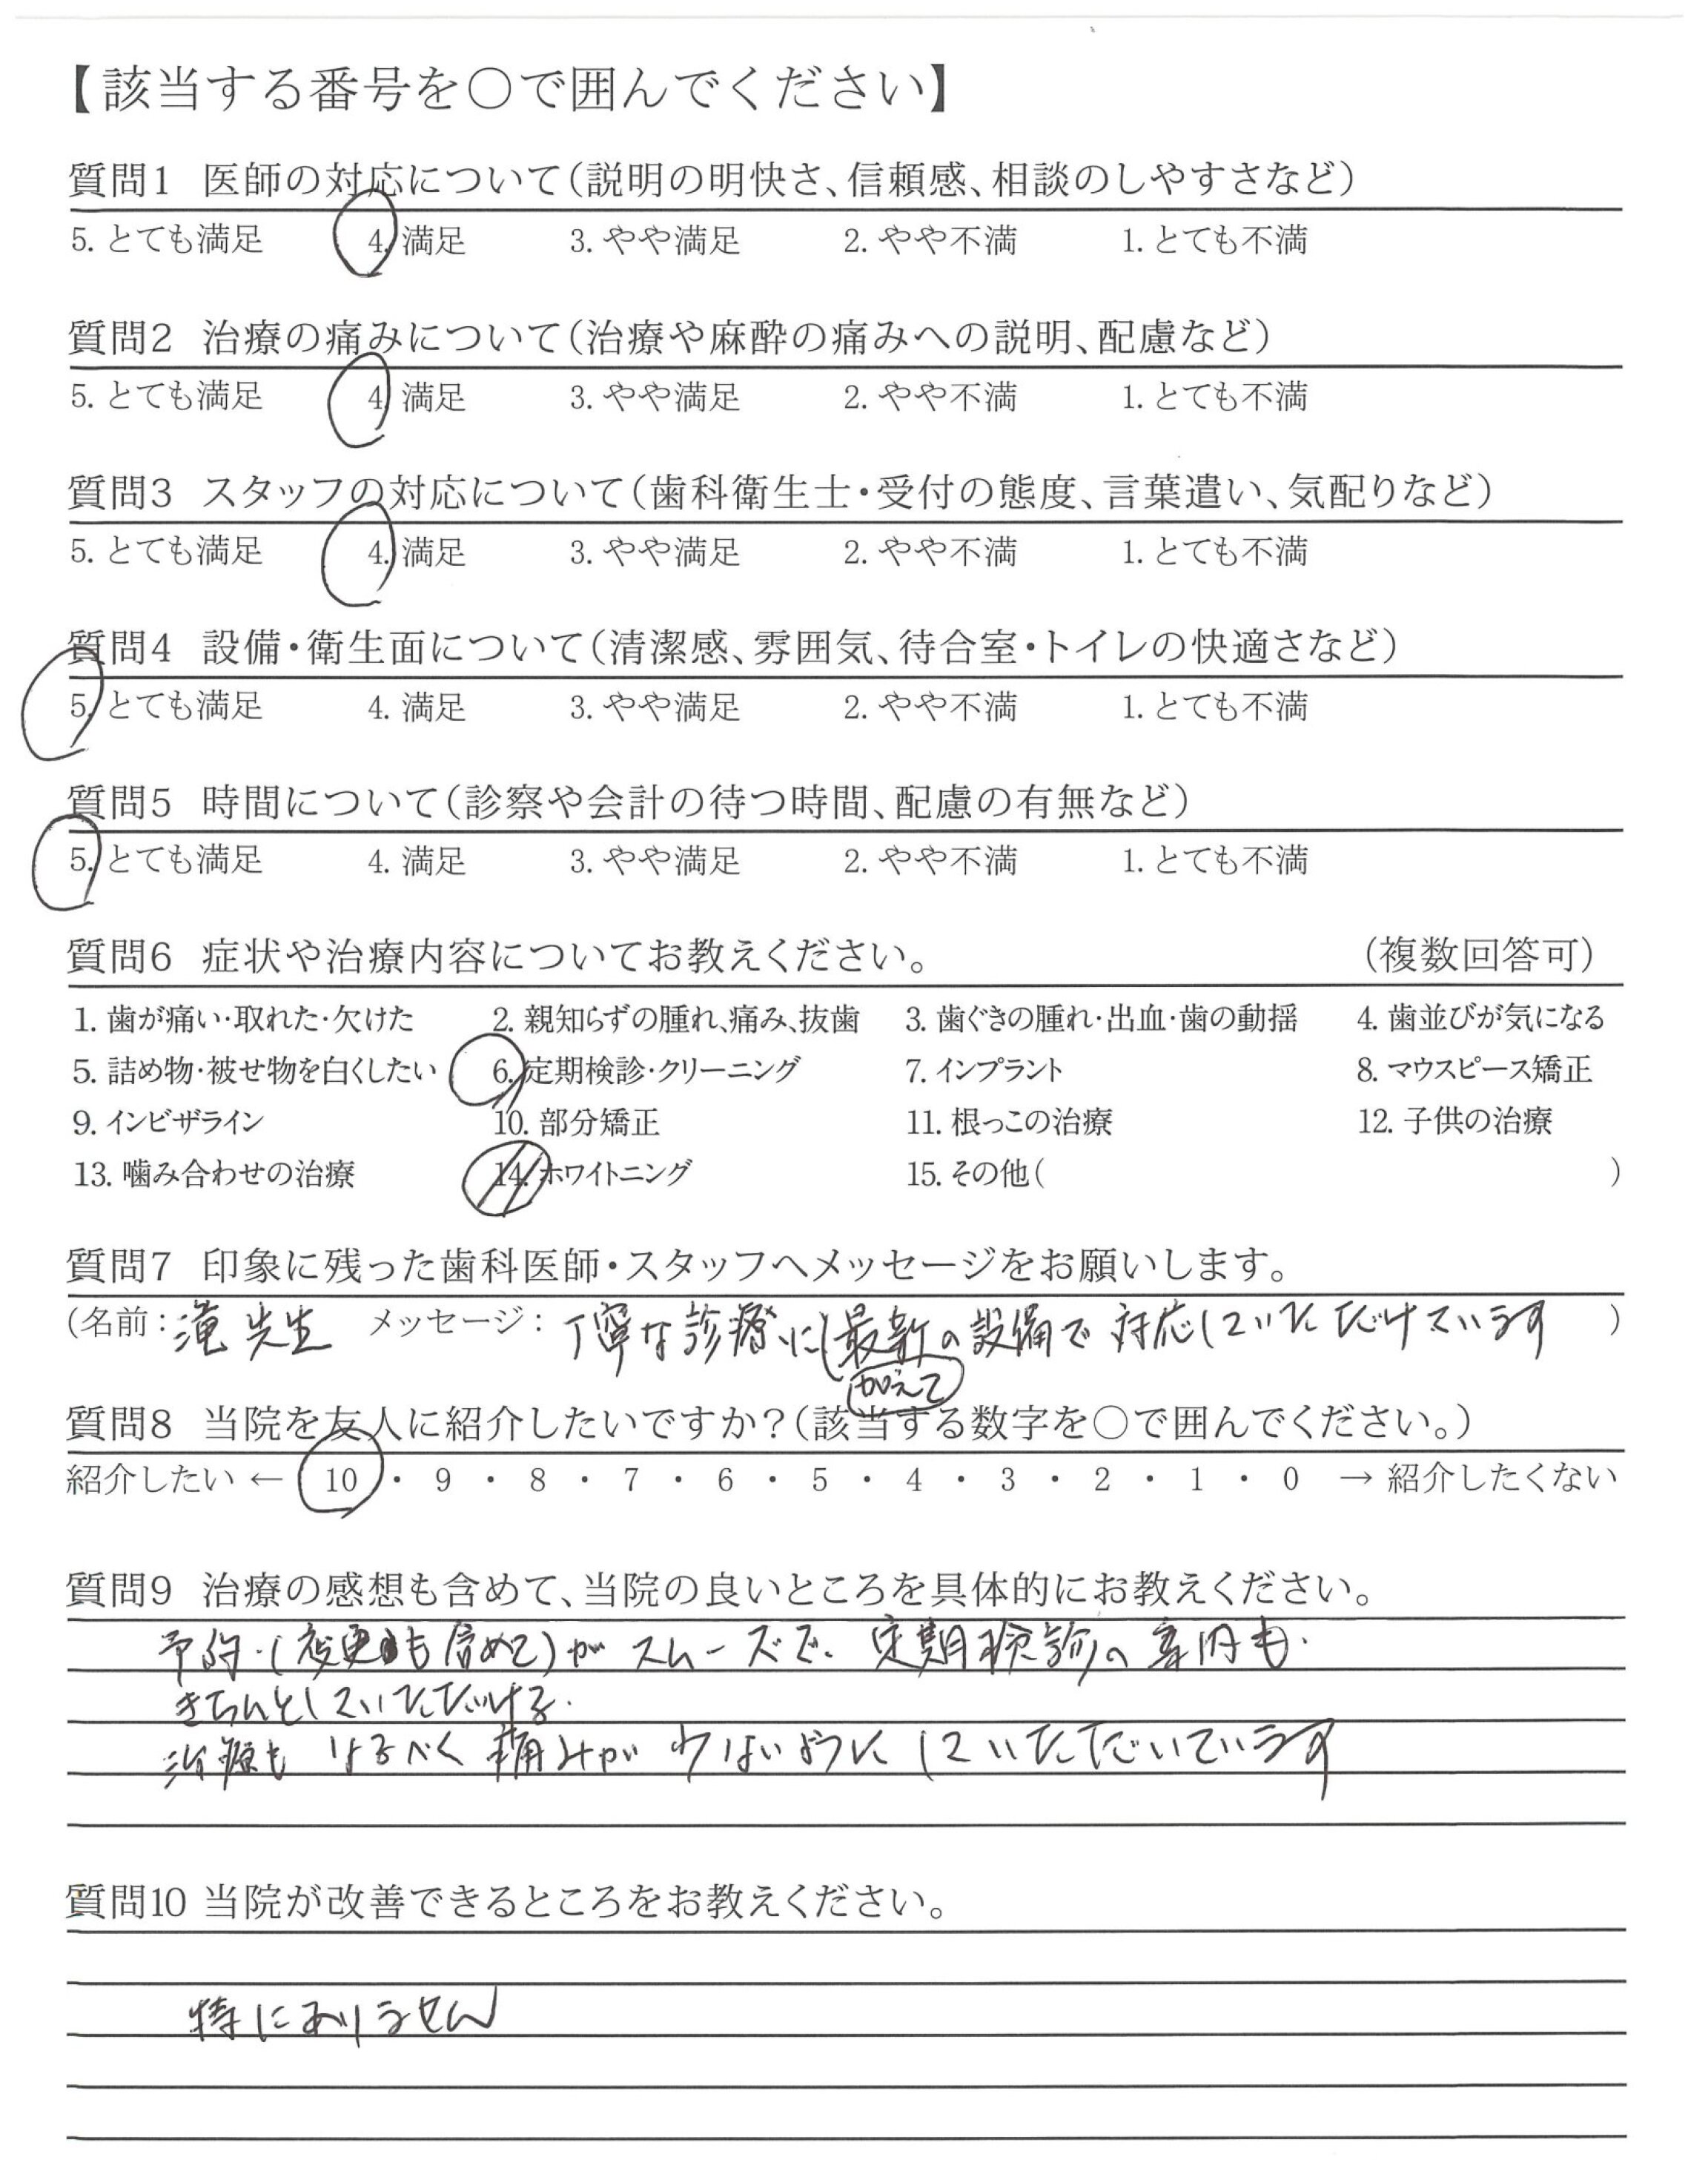 【該当する番号を○で囲んでください】
質問1 医師の対応について(説明の明快さ、信頼感、相談のしやすさなど)
5. とても満足 4. 満足 3. やや満足 2. やや不満 1. とても不満
質問2 治療の痛みについて(治療や麻酔の痛みへの説明、配慮など)
5. とても満足 4. 満足 3. やや満足 2. やや不満 1. とても不満
質問3 スタッフの対応について(歯科衛生士・受付の態度、言葉遣い、気配りなど)
5. とても満足 4. 満足 3. やや満足 2. やや不満 1. とても不満
質問4 設備・衛生面について(清潔感、雰囲気、待合室・トイレの快適さなど)
5. とても満足 4. 満足 3. やや満足 2. やや不満 1. とても不満
質問5 時間について(診察や会計の待つ時間、配慮の有無など)
5. とても満足 4. 満足 3. やや満足 2. やや不満 1. とても不満
質問6 症状や治療内容についてお教えください。 (複数回答可)
1. 歯が痛い・取れた・欠けた 2. 親知らずの腫れ、痛み、抜歯 3. 歯ぐきの腫れ・出血・歯の動揺 4. 歯並びが気になる
5. 詰め物・被せ物を白くしたい 6. 定期検診・クリーニング 7. インプラント 8. マウスピース矯正
9. インビザライン 10. 部分矯正 11. 根っこの治療 12. 子供の治療
13. 噛み合わせの治療 14. ホワイトニング 15. その他( )
質問7 印象に残った歯科医師・スタッフへメッセージをお願いします。
(名前: 滝先生 メッセージ: 丁寧な診療に最新の設備で対応していただけています )
かえて
質問8 当院を友人に紹介したいですか?(該当する数字を○で囲んでください。)
紹介したい ← 10 ・ 9 ・ 8 ・ 7 ・ 6 ・ 5 ・ 4 ・ 3 ・ 2 ・ 1 ・ 0 → 紹介したくない
質問9 治療の感想も含めて、当院の良いところを具体的にお教えください。
予約(変更も含めて)がスムーズで、定期検診の案内も
きちんとしていただける。
治療もなるべく痛みが少ないようにしていただいています
質問10 当院が改善できるところをお教えください。
特にありません